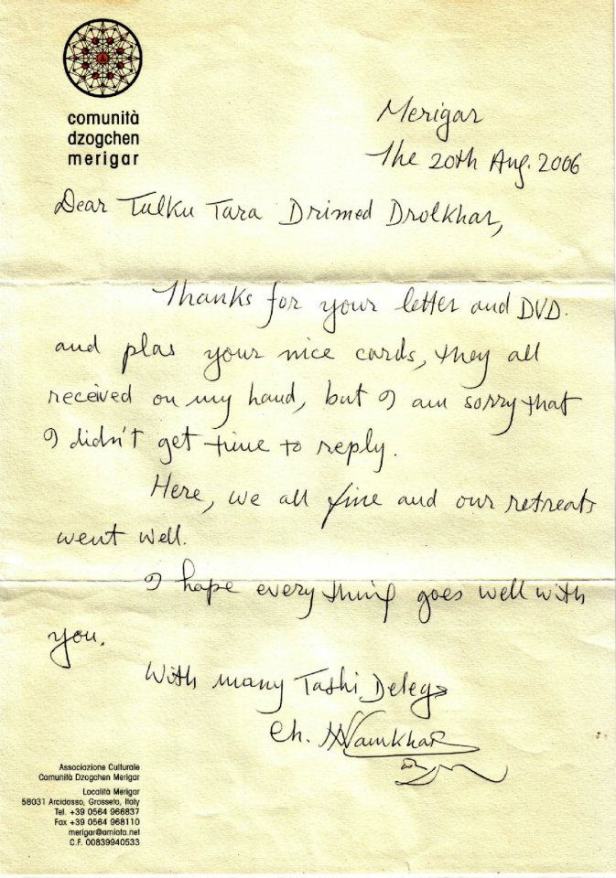 comunità
dzogchen
merigar
Merigar
The 20th Aug. 2006
Dear Tulku Tara Drimed Drolkhar,
Thanks for your letter and DVD.
and plas your nice cards, they all
received on my hand, but I am sorry that
I didn't get time to reply.
Here, we all fine and our retreats
went well.
I hope every thing goes well with
you.
With many Tashi Delegs
Ch. N Namkhai
Associazione Culturale
Comunità Dzogchen Merigar
Località Merigar
58031 Arcidosso, Grosseto, Italy
Tel. +39 0564 966837
Fax +39 0564 968110
merigar@amiata.net
C.F. 00839940533